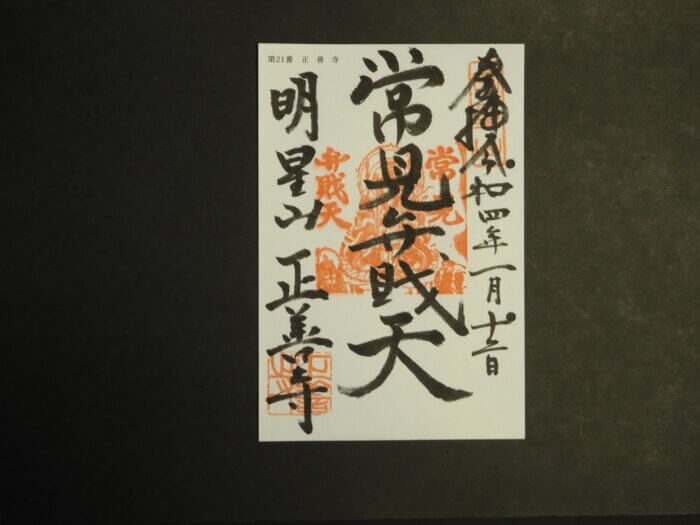 第21番 正善寺
奉拝 令和四年一月十二日
常見弁戝天
常見
弁戝天
明星山 正善寺